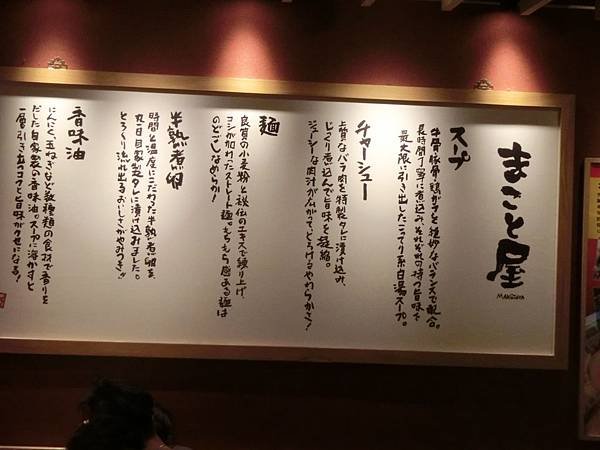 まこと屋
MAKOTOYA
スープ
牛骨・豚骨・鶏ガラを絶妙なバランスで配合。
長時間丁寧に煮込み、それぞれの持つ旨味を
最大限に引き出したこってり系白湯スープ。
チャーシュー
上質なバラ肉を特製タレに漬け込み、
じっくり煮込んで旨味を凝縮。
ジューシーな肉汁が広がって、とろけるやわらかさ!
麺
良質の小麦粉と秘伝のエキスで練り上げ、
コシが加わったストレート麺。もちもち感ある麺は
のどごしなめらか!
半熟煮卵
時間と温度にこだわった半熟煮卵を、
丸一日自家製タレに漬け込みました。
とろ〜り流れ出るおいしさがやみつき!!
香味油
にんにく、玉ねぎなど数種類の食材で香りを
だした自家製の香味油。スープに溶かすと
一層引き立つコクと旨味がクセになる!